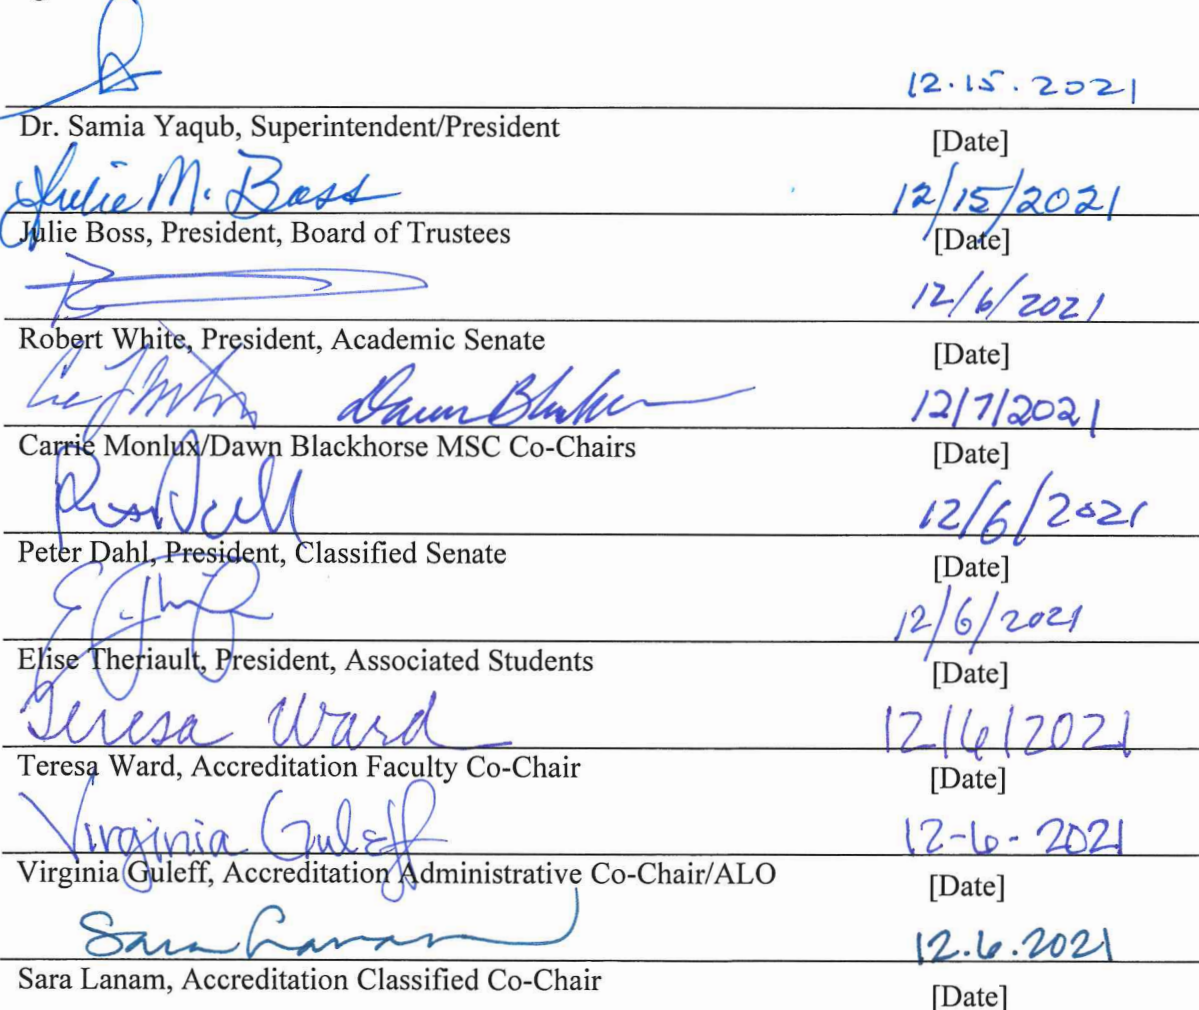 12.15.2021
Dr. Samia Yaqub, Superintendent/President [Date]
Julie M. Boss 12/15/2021
Julie Boss, President, Board of Trustees [Date]
12/6/2021
Robert White, President, Academic Senate [Date]
12/7/2021
Carrie Monlux/Dawn Blackhorse MSC Co-Chairs [Date]
12/6/2021
Peter Dahl, President, Classified Senate [Date]
12/6/2021
Elise Theriault, President, Associated Students [Date]
Teresa Ward 12/6/2021
Teresa Ward, Accreditation Faculty Co-Chair [Date]
Virginia Guleff 12-6-2021
Virginia Guleff, Accreditation Administrative Co-Chair/ALO [Date]
Sara Lanam 12.6.2021
Sara Lanam, Accreditation Classified Co-Chair [Date]